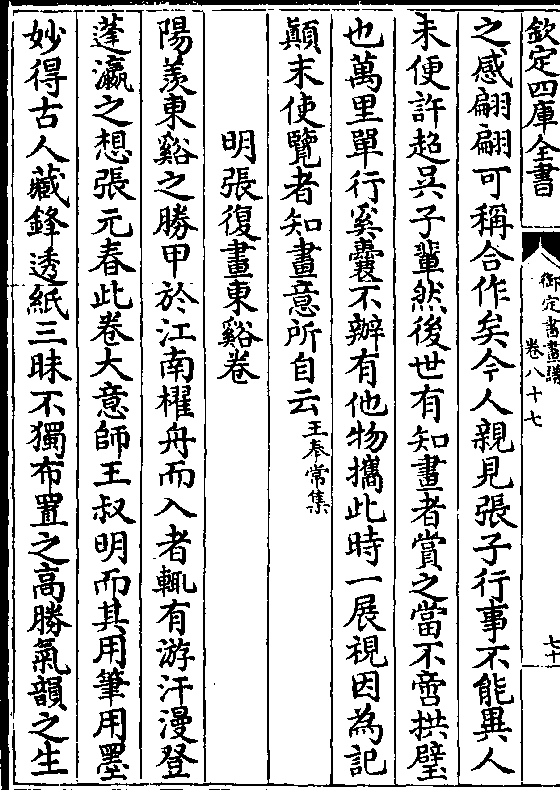 欽定四庫全書
御定書畫譜
卷八十七
七十
之感翩翩可稱合作矣今人親見張子行事不能異人
未便許超吳子輩然後世有知畫者賞之當不啻拱璧
也萬里單行奚囊不辦有他物攜此時一展視因為記
顛末使覽者知畫意所自云王奉常集
明張復畫東谿卷
陽羨東谿之勝甲於江南櫂舟而入者輒有游汗漫登
蓬瀛之想張元春此卷大意師王叔明而其用筆用墨
妙得古人藏鋒透紙三昧不獨布置之高勝氣韻之生